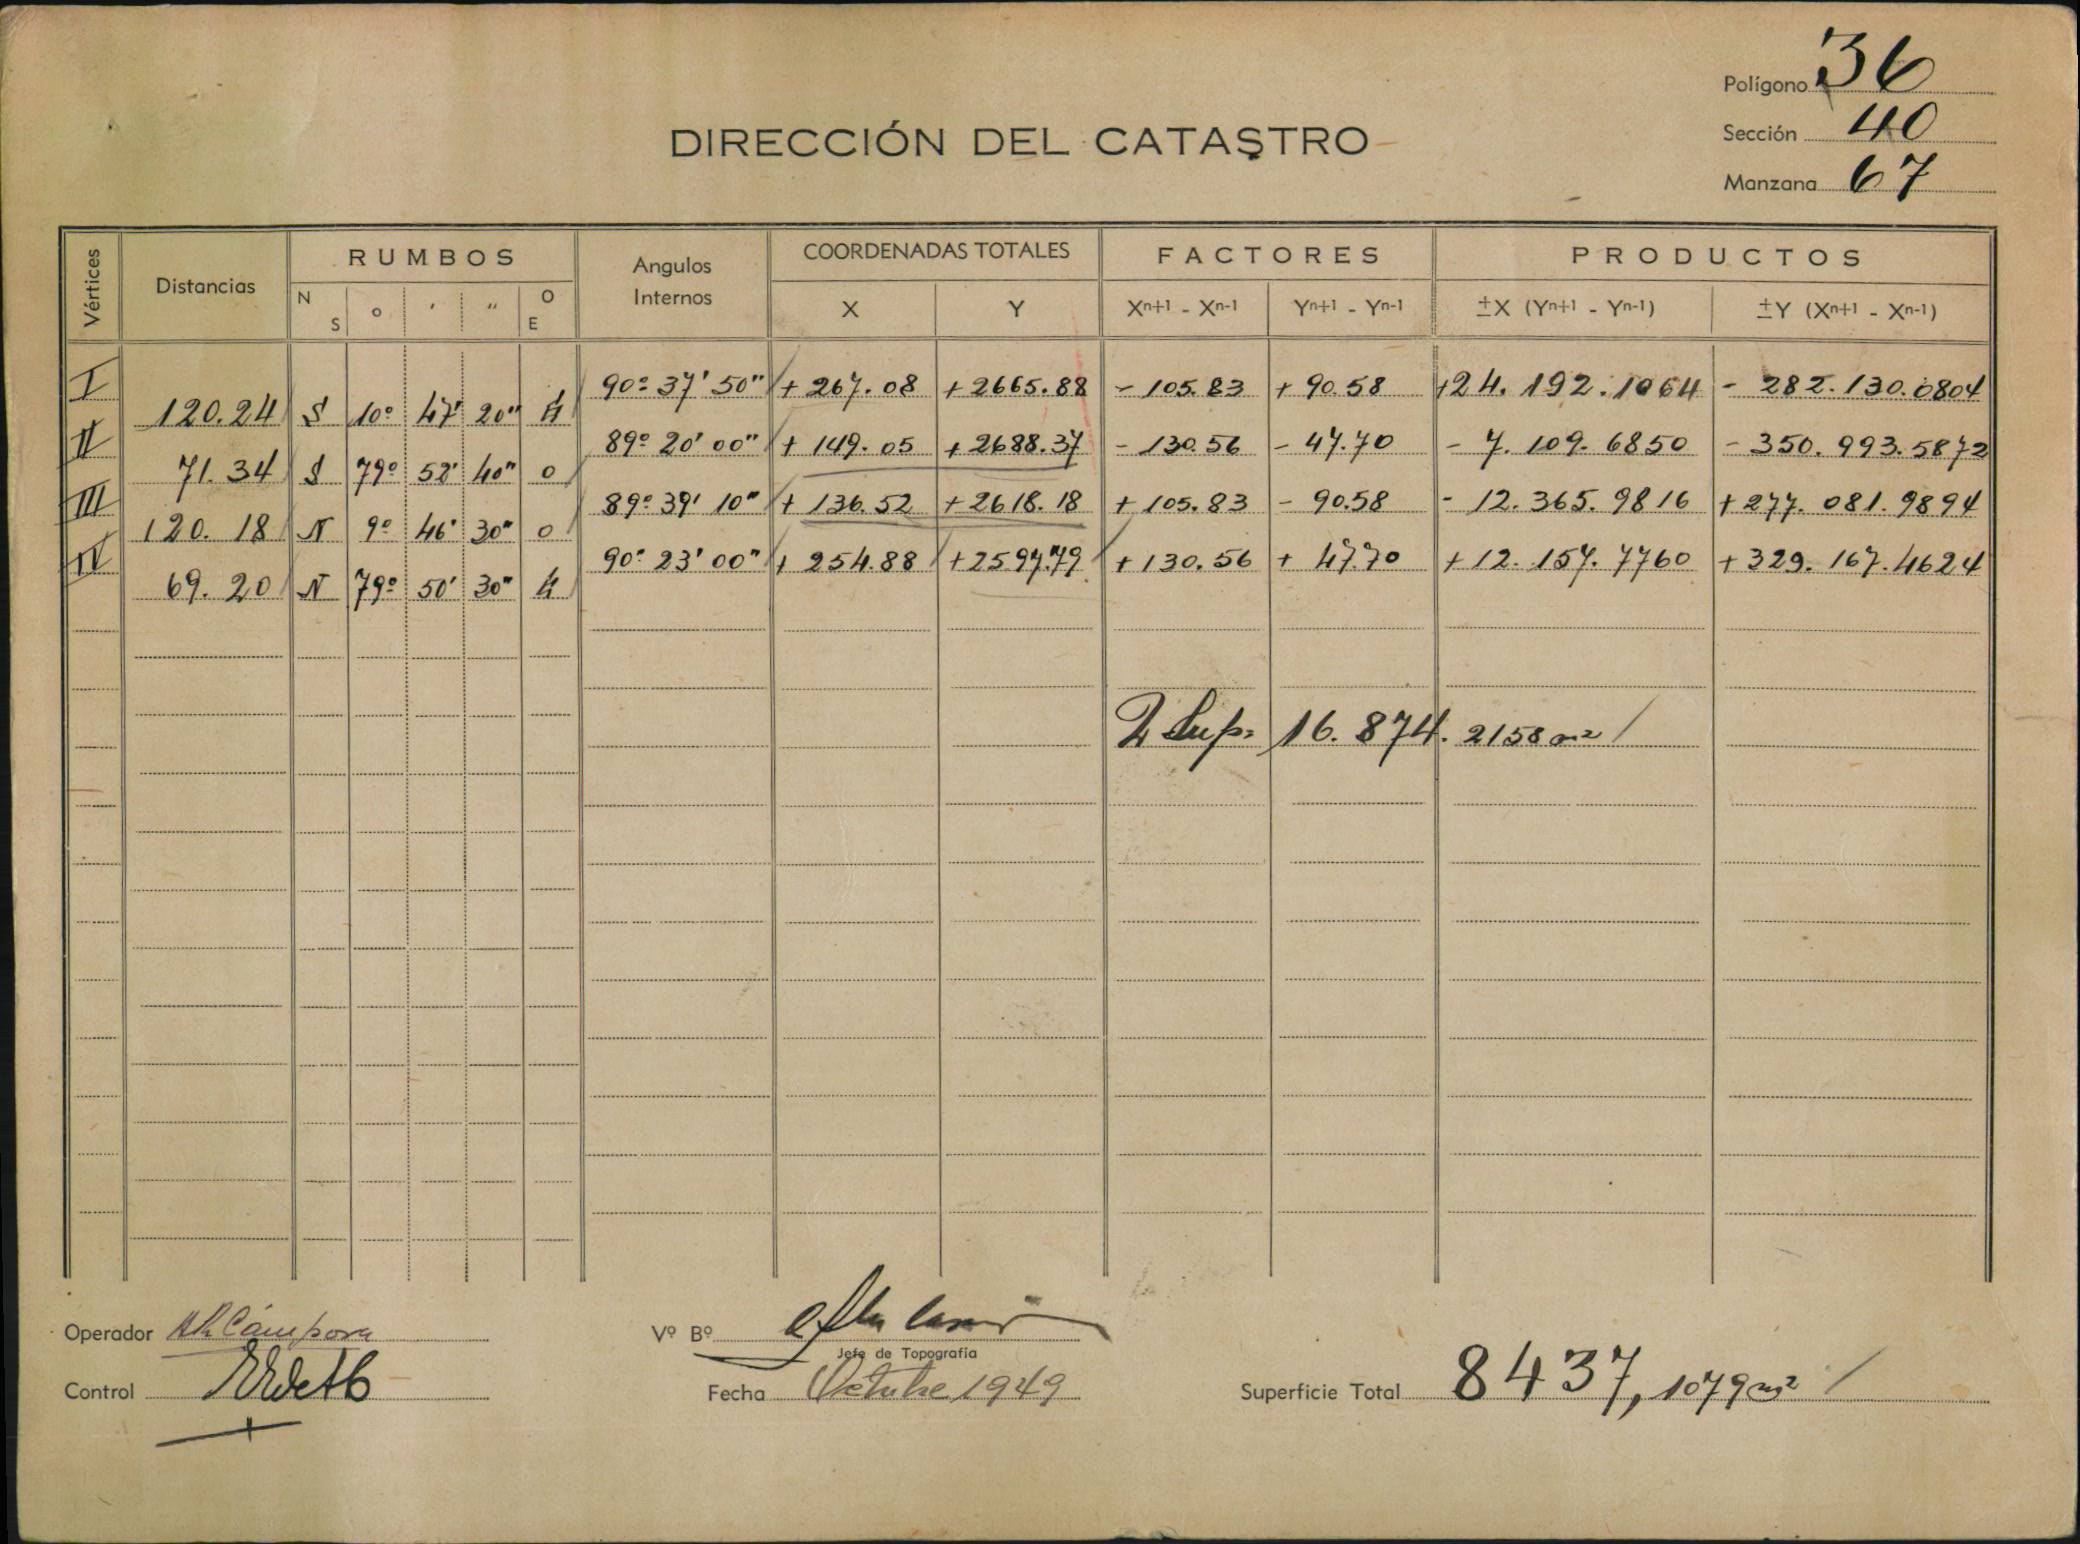 Polígono 36
DIRECCIÓN DEL CATASTRO
Sección 40
Manzana 67
Vértices Distancias RUMBOS Angulos Internos COORDENADAS TOTALES FACTORES PRODUCTOS
N S o ′ ″ O E X Y Xn+1 - Xn-1 Yn+1 - Yn-1 ±X (Yn+1 - Yn-1) ±Y (Xn+1 - Xn-1)
I 90º 37' 50" + 267.08 + 2665.88 - 105.83 + 90.58 +24.192.1064 - 282.130.0804
120.24 S 10º 47' 20" E
II 89º 20' 00" + 149.05 + 2688.37 - 130.56 - 47.70 - 7.109.6850 - 350.993.5872
71.34 S 79º 52' 40" O
III 89º 39' 10" + 136.52 + 2618.18 + 105.83 - 90.58 - 12.365.9816 + 277.081.9894
120.18 N 9º 46' 30" O
IV 90º 23' 00" + 254.88 + 2597.79 + 130.56 + 47.70 + 12.157.7760 + 329.167.4624
69.20 N 79º 50' 30" E
2 Sup= 16.874.2158 m2
Operador Cámpora
Vº Bº
Jefe de Topografía
Control
Fecha Octubre 1949
Superficie Total 8437,1079 m2